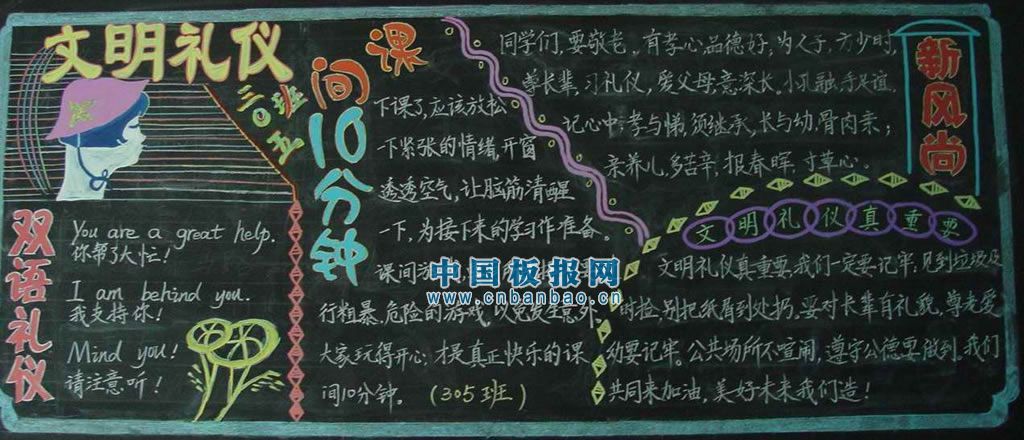 文明礼仪
三〇五班
双语礼仪
You are a great help.
你帮了大忙！
I am behind you.
我支持你！
Mind you!
请注意听！
课间10分钟
下课了，应该放松
一下紧张的情绪，开窗
透透空气，让脑筋清醒
一下，为接下来的学习作准备。
课间
行粗暴、危险的游戏，以免发生意外，
大家玩得开心；才是真正快乐的课
间10分钟。（305班）
新风尚
同学们，要敬老，有孝心，品德好，为人子，方少时，
尊长辈，习礼仪，爱父母，意深长，小孔融，手足谊，
记心中；孝与悌，须继承，长与幼，骨肉亲；
亲养儿，多苦辛，报春晖，寸草心。
文明礼仪真重要
文明礼仪真重要，我们一定要记牢，见到垃圾及
时捡，别把纸屑到处扔，要对长辈有礼貌，尊老爱
幼要记牢。公共场所不喧闹，遵守公德要做到。我们
共同来加油，美好未来我们造！
中国板报网
www.cnbanbao.cn